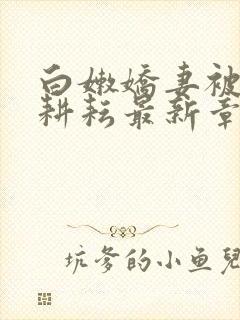 白嫩嬌妻被
耕耘最新章
坑爹的小鱼兒